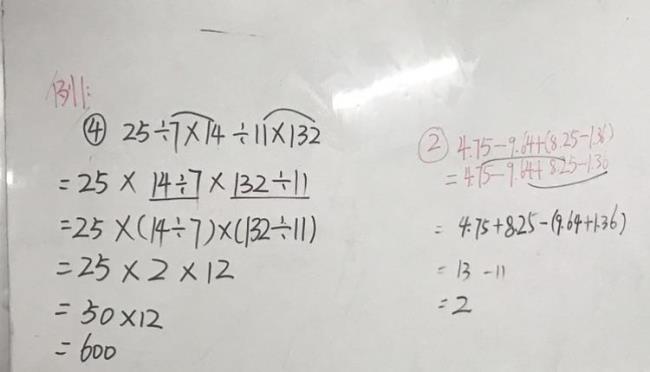 例1:
④ 25÷7×14÷11×132
=25×14÷7×132÷11
=25×(14÷7)×(132÷11)
=25×2×12
=50×12
=600
② 4.75-9.64+(8.25-1.36)
=4.75-9.64+8.25-1.36
=4.75+8.25-(9.64+1.36)
=13-11
=2